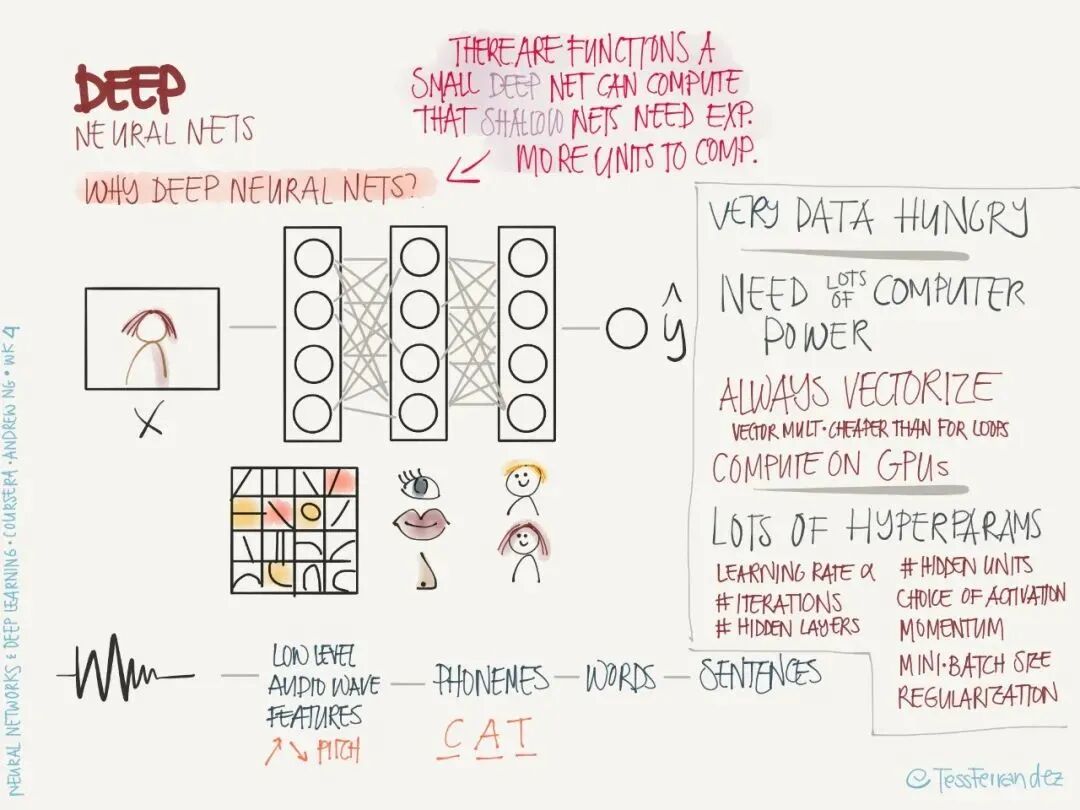 DEEP
NEURAL NETS
WHY DEEP NEURAL NETS?
THERE ARE FUNCTIONS A
SMALL DEEP NET CAN COMPUTE
THAT SHALLOW NETS NEED EXP.
MORE UNITS TO COMP.
X
ŷ
LOW LEVEL
AUDIO WAVE
FEATURES
↗↘ PITCH
PHONEMES
C A T
WORDS
SENTENCES
VERY DATA HUNGRY
NEED LOTS OF COMPUTER
POWER
ALWAYS VECTORIZE
VECTOR MULT. CHEAPER THAN FOR LOOPS
COMPUTE ON GPUs
LOTS OF HYPERPARAMS
LEARNING RATE α
# ITERATIONS
# HIDDEN LAYERS
# HIDDEN UNITS
CHOICE OF ACTIVATION
MOMENTUM
MINI-BATCH SIZE
REGULARIZATION
NEURAL NETWORKS & DEEP LEARNING · COURSERA · ANDREW NG · WK 4
@TessFerrandez